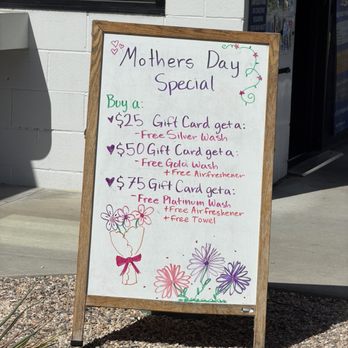 Mothers Day
Special
Buy a:
$25 Gift Card get a:
-Free Silver Wash
$50 Gift Card get a:
-Free Gold Wash
+Free Airfreshener
$75 Gift Card get a:
-Free Platinum Wash
+Free Airfreshener
+Free Towel